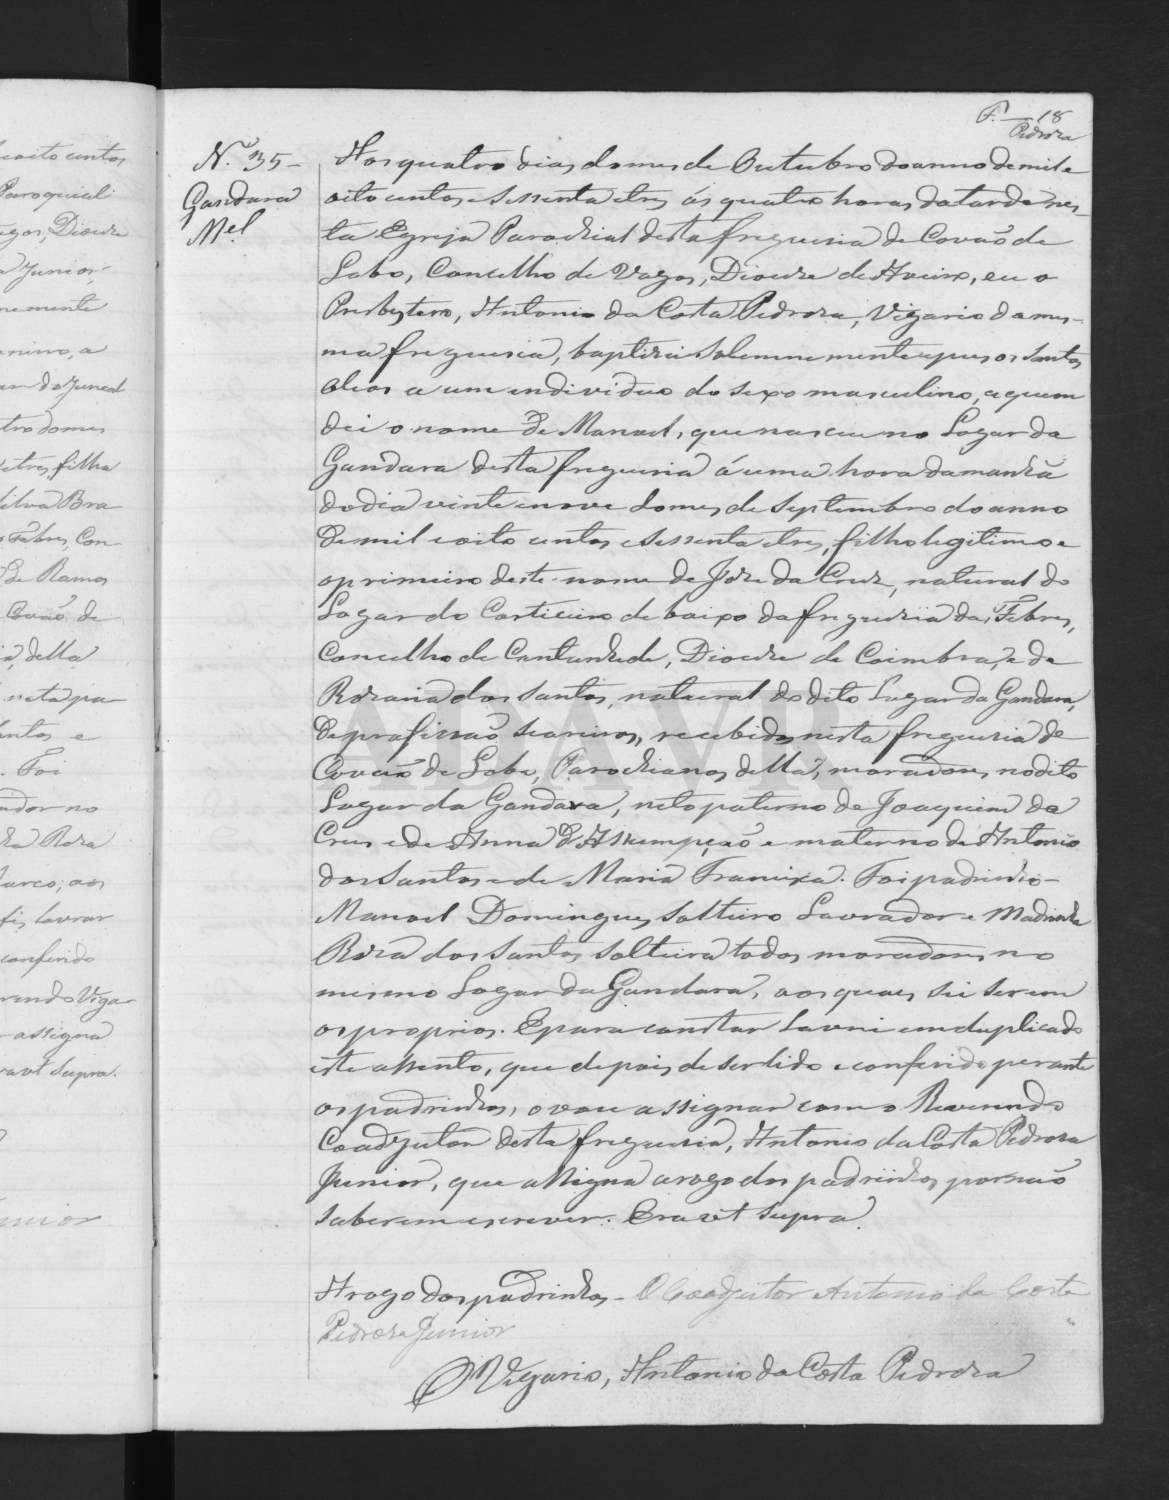 F. — 18
Pedroza
N.º 35 –
Gandara
M.el
Aos quatro dias do mes de Outubro do anno de mil e
oito centos e sessenta e tres ás quatro horas da tarde nes-
ta Egreja Parochial desta freguesia de Covão de
Lobo, Concelho de Vagos, Diocese de Aveiro, eu o
Presbytero, Antonio da Costa Pedroza, Vigario da mes-
ma freguesia, baptizei solemnemente e puz os santos
oleos a um individuo do sexo masculino, a quem
dei o nome de Manoel, que nasceu no Logar da
Gandara desta freguesia á uma hora da manhã
do dia vinte e nove do mes de Septembro do anno
de mil e oito centos e sessenta e tres, filho legitimo e
o primeiro deste nome de Joze da Cruz, natural do
Logar do Corticeiro de baixo da freguezia da Febres,
Concelho de Cantanhede, Diocese de Coimbra, e de
Rozaria dos Santos, natural do dito Lugar da Gandara,
de profissão seareiros, recebidos nesta freguesia de
Covão de Lobo, Parochianos della, moradores no dito
Lugar da Gandara, neto paterno de Joaquim da
Cruz e de Anna d'Assumpção e materno de Antonio
dos Santos e de Maria Franciza. Foi padrinho –
Manoel Domingues, solteiro Lavrador e Madrinha
Roza dos Santos solteira todos moradores no
mesmo Logar da Gandara, aos quaes sei serem
os proprios. E para constar lavrei em duplicado
este assento, que depois de ser lido e conferido perante
os padrinhos, o vou assignar com o Reverendo
Coadjutor desta freguesia, Antonio da Costa Pedroza
Junior, que assigna a rogo dos padrinhos por não
saberem escrever. Era ut supra.
A rogo dos padrinhos – O Coadjutor Antonio da Costa
Pedroza Junior
O Vigario, Antonio da Costa Pedroza
ADAVR
e oito centos
Paroquial
Vagos, Diocese
Junior,
nemente
enino, a
tro do mes
e tres, filha
Silva Bra
Febres, Con-
de Ramos
Covão de
della
neta pa
antos e
. Foi
ador no
Roza
lavrar
conferido
rendo Viga-
assigna
ra ut supra.
unior